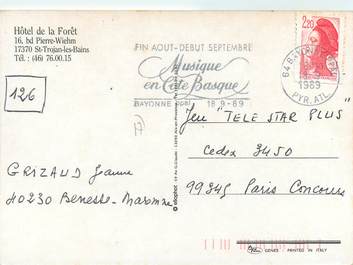 Hôtel de la Forêt
16, bd Pierre-Wiehn
17370 St-Trojan-les-Bains
Tél. : (46) 76.00.15
FIN AOUT-DEBUT SEPTEMBRE
Musique
en Côte Basque
BAYONNE 18.9-89
2,20
64 BAYONNE
1989
PYR. ATL.
126
17
Jeu "TELE STAR PLUS"
Cedex 3450
99345 Paris Concours
GRIZAUD Jeanne
40230 Benesse-Maremne
GENES PRINTED IN ITALY